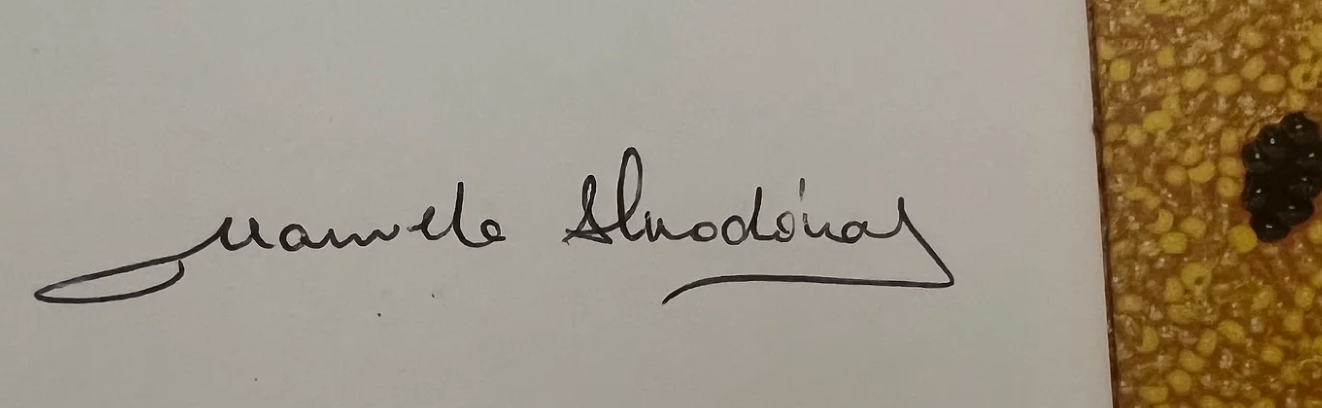 Manuela Almodóvar